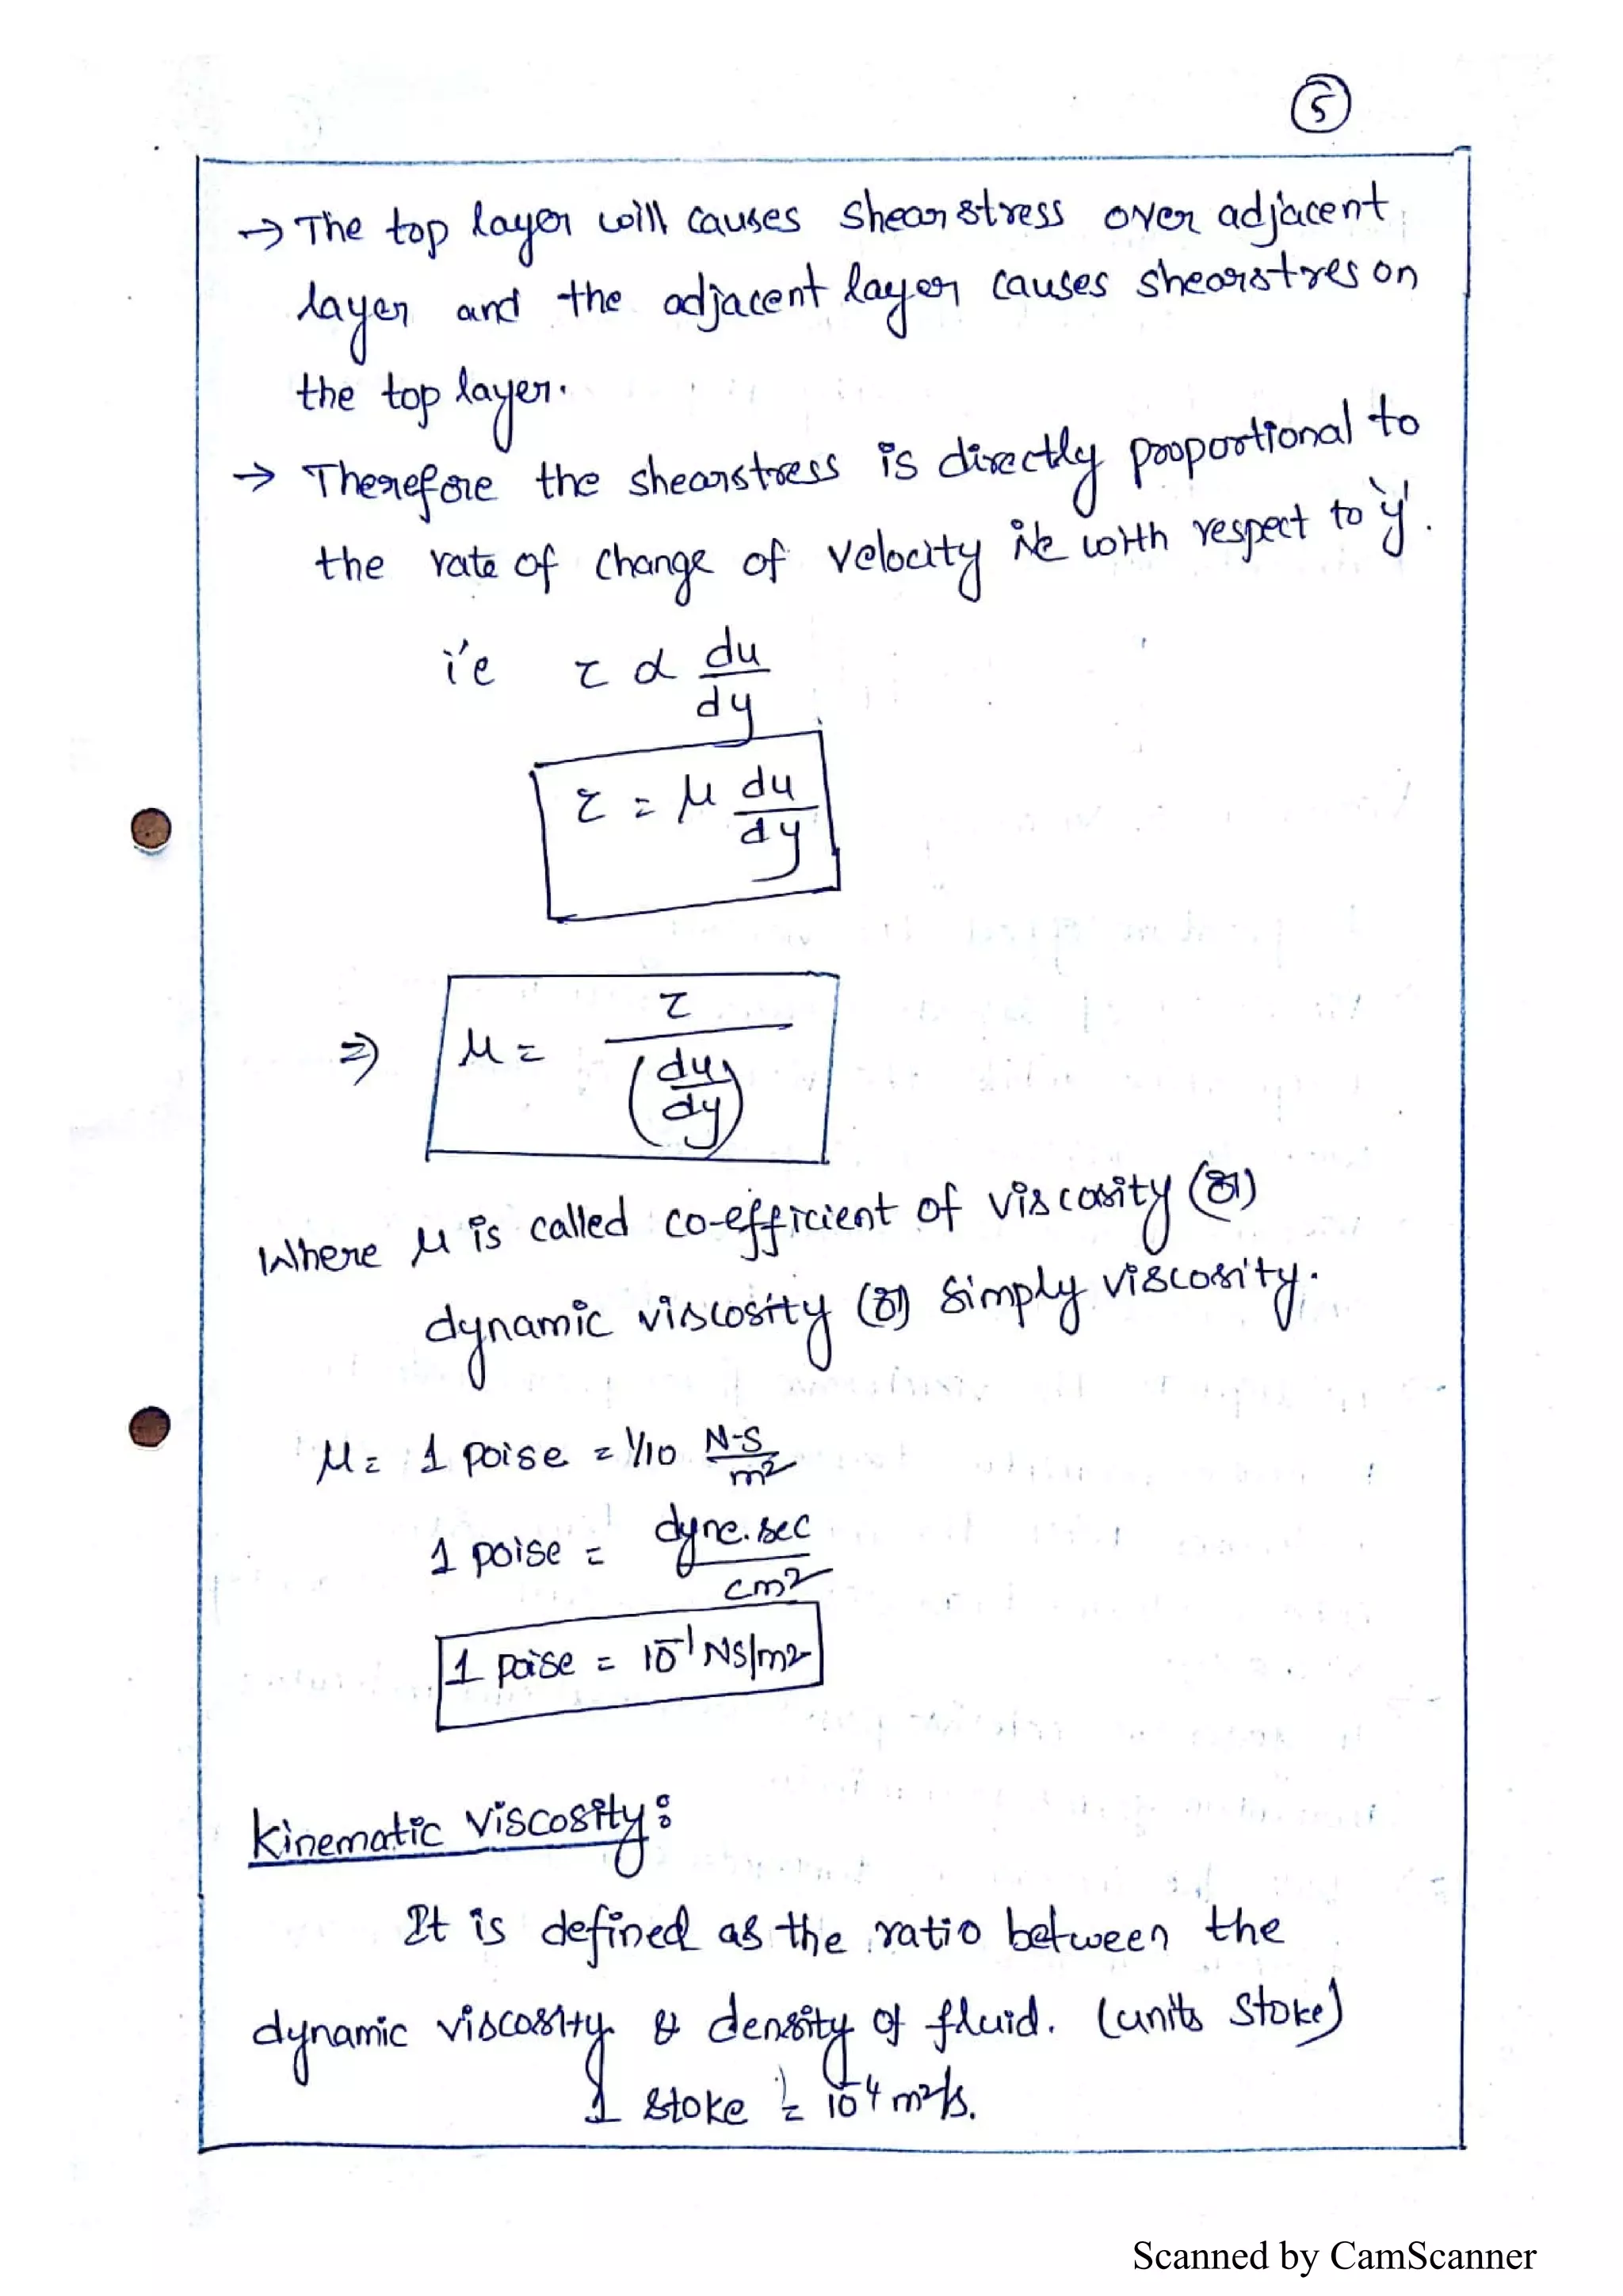 5
→ The top layer will causes Shear stress over adjacent
layer and the adjacent layer causes shearstres on
the top layer.
→ Therefore the shearstress is directly proportional to
the rate of change of velocity with respect to 'y'.
i.e τ α du/dy
τ = μ du/dy
⇒ μ = τ/(du/dy)
Where μ is called co-efficient of viscosity (or)
dynamic viscosity (or) simply viscosity.
μ = 1 poise = 1/10 N-S/m²
1 poise = dyne.sec/cm²
1 poise = 10⁻¹ NS/m²
Kinematic Viscosity:
It is defined as the ratio between the
dynamic viscosity & density of fluid. (units Stoke)
1 stoke = 10⁻⁴ m²/s.
Scanned by CamScanner